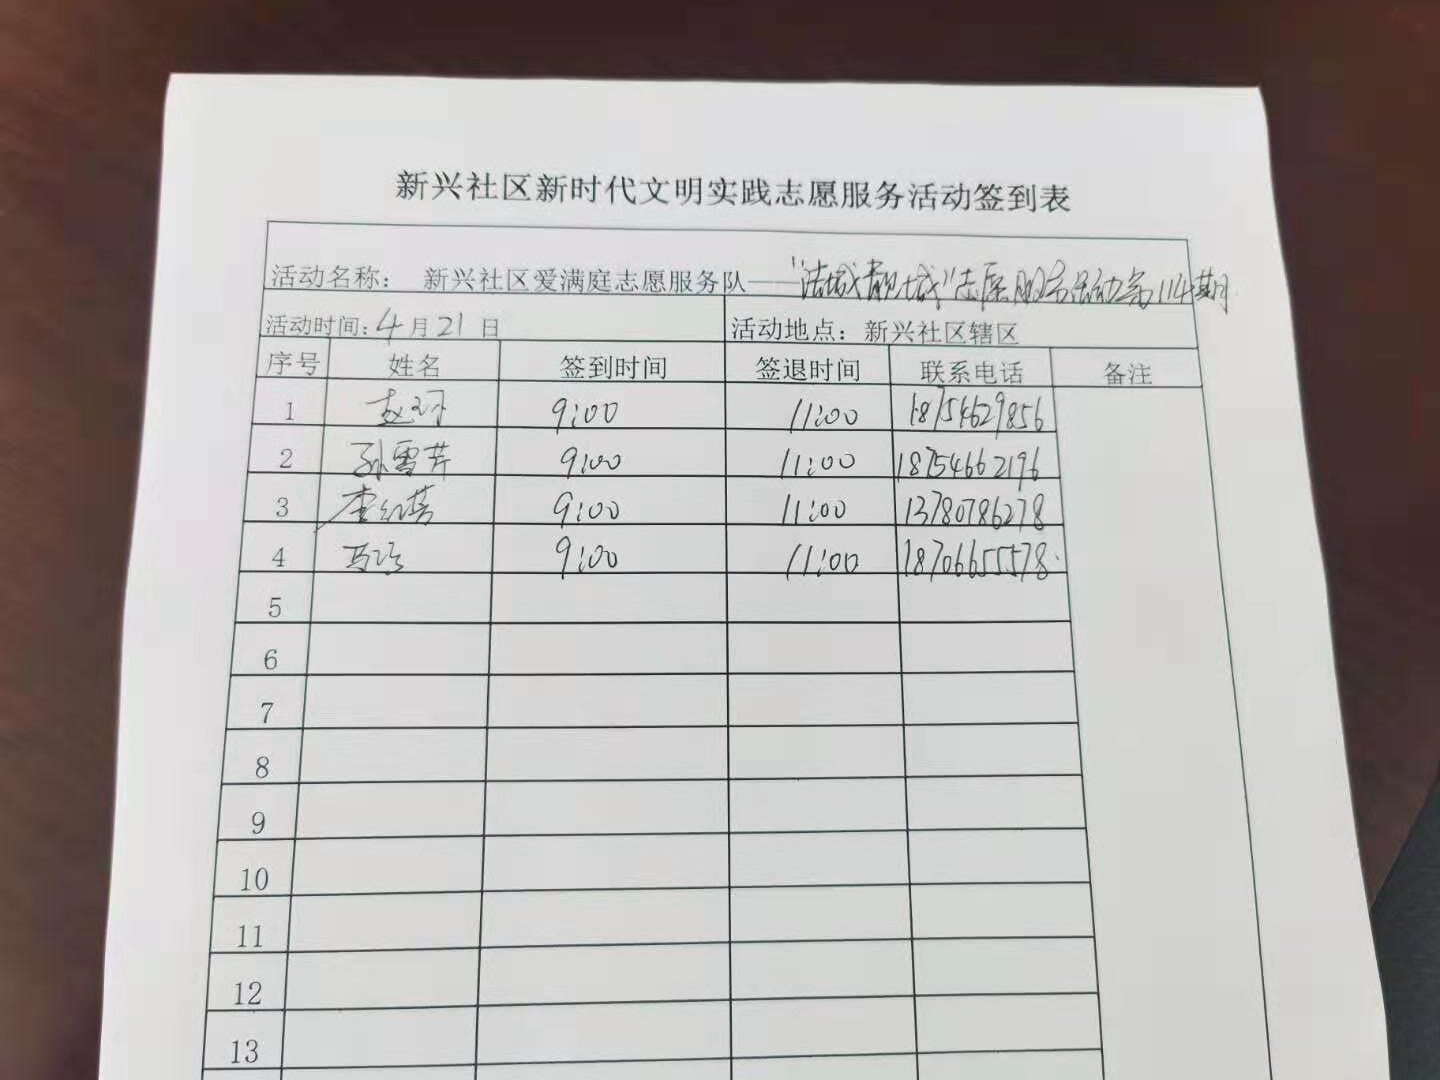 新兴社区新时代文明实践志愿服务活动签到表
活动名称： 新兴社区爱满庭志愿服务队——"洁城靓城"志愿服务活动第114期
活动时间：4月21日 活动地点：新兴社区辖区
序号 姓名 签到时间 签退时间 联系电话 备注
1 赵 9:00 11:00 18754629856
2 孙雪芹 9:00 11:00 18754662196
3 李红芳 9:00 11:00 13780786278
4 9:00 11:00 18706655578
5
6
7
8
9
10
11
12
13